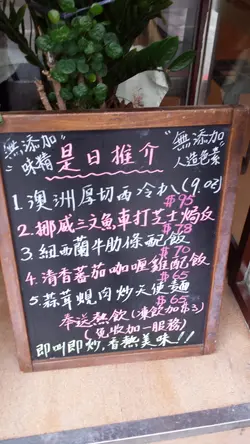 "無添加 味精"
是日推介
"無添加 人造色素"
1. 澳洲厚切西冷扒(9.oz)
$95
2. 挪威三文魚車打芝士焗飯
$78
3. 紐西蘭牛肋條配飯
$70
4. 清香蕃茄咖喱雞配飯
$65
5. 蒜茸蜆肉炒天使麵
$65
奉送熱飲(凍飲加$3)
(免收加一服務)
即叫即炒,香熱美味!!